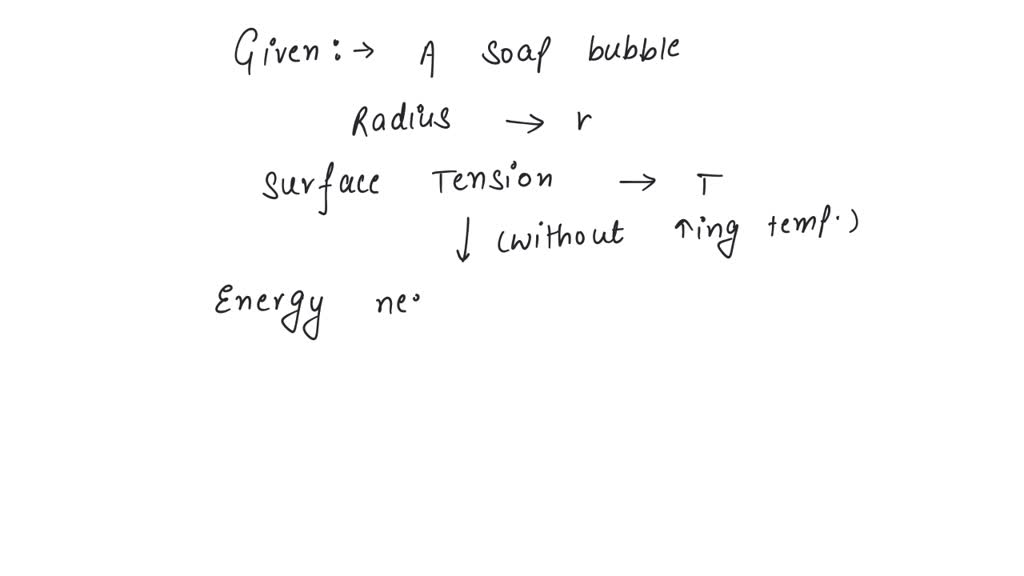 Given :→ A soap bubble
Radius → r
Surface Tension → T
↓ (without ↑ing temp.)
Energy ne